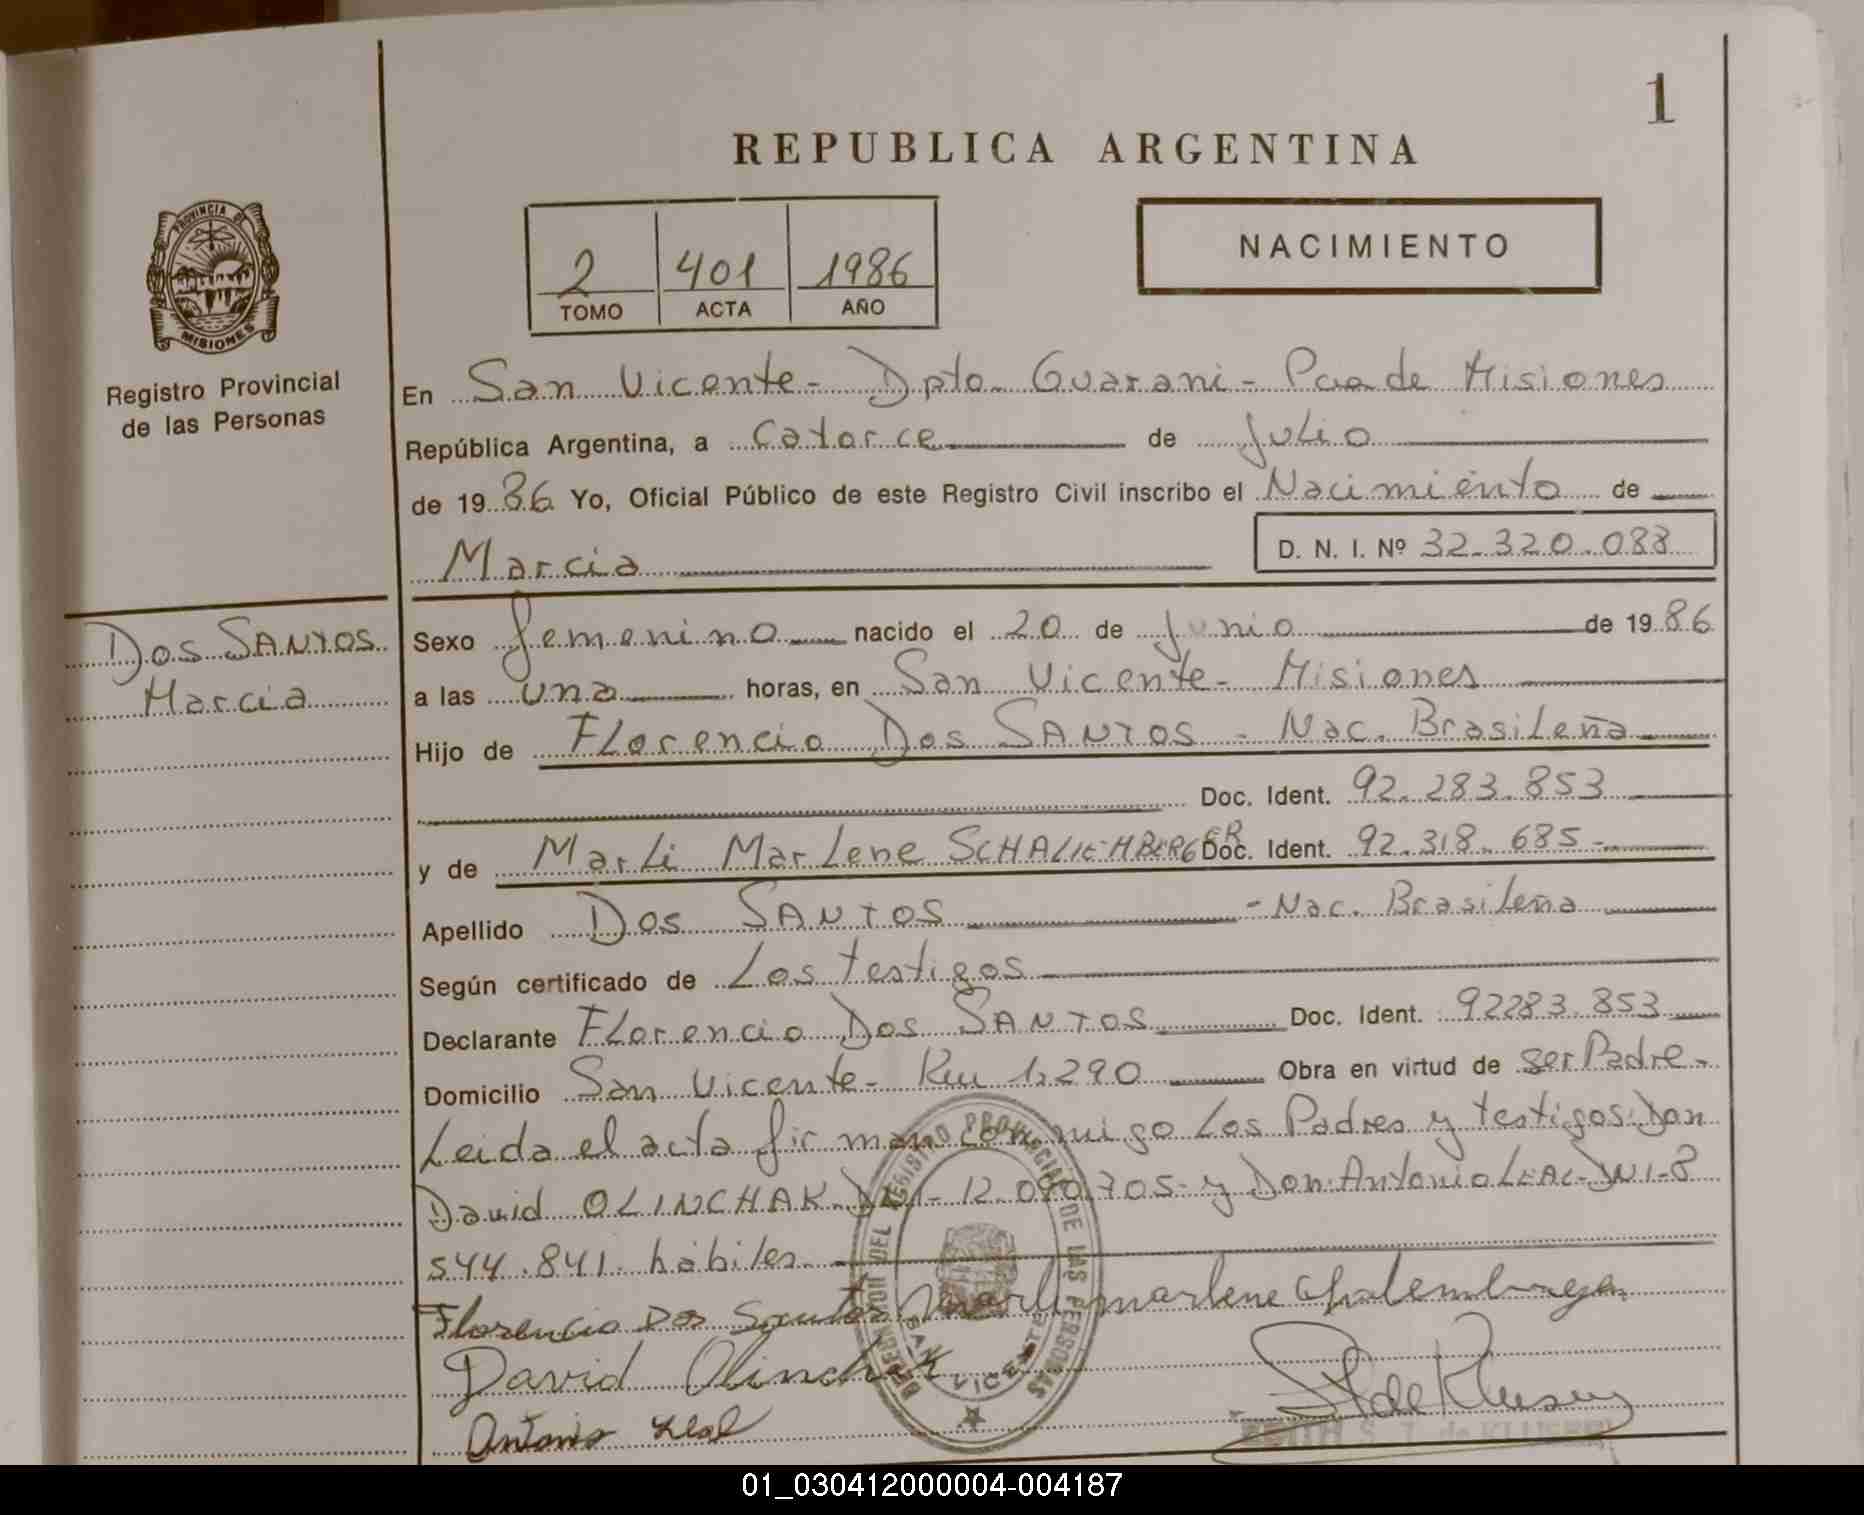 1
REPUBLICA ARGENTINA
2 401 1986
TOMO ACTA AÑO
NACIMIENTO
PROVINCIA DE
MISIONES
Registro Provincial
de las Personas
En San Vicente - Dpto. Guarani - Pcia de Misiones
República Argentina, a Catorce de Julio
de 19 86 Yo, Oficial Público de este Registro Civil inscribo el Nacimiento de
Marcia D. N. I. Nº 32.320.088
DOS SANTOS
Marcia
Sexo femenino nacido el 20 de Junio de 19 86
a las una horas, en San Vicente - Misiones
Hijo de Florencio Dos SANTOS - Nac. Brasileña
Doc. Ident. 92.283.853
y de Marli Marlene SCHALIEMBERGER Doc. Ident. 92.318.685
Apellido Dos SANTOS - Nac. Brasileña
Según certificado de Los testigos
Declarante Florencio Dos SANTOS Doc. Ident. 92283.853
Domicilio San Vicente - Km 1.290 Obra en virtud de ser Padre -
Leida el acta firman conmigo Los Padres y testigos: Don
David OLINCHAK DNI - 12.090.705 - y Don Antonio LEAL - DNI - 8
544.841. hábiles.
Florencio Dos Santos Marli marlene
David Olinchak
Antonio Leal
REGISTRO PROVINCIAL DE LAS PERSONAS
SAN VICENTE
01_030412000004-004187